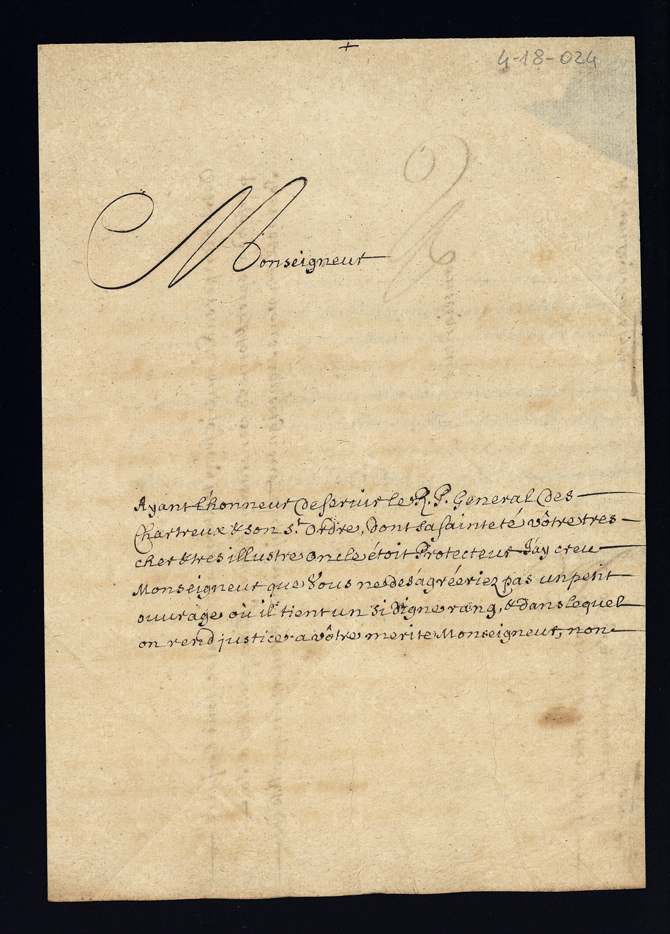 4-18-024
Monseigneur
Ayant l'honneur de servir le R. P. General des
Chartreux & son st. Ordre, dont sa sainteté vôtre tres
cher & tres illustre oncle étoit Protecteur J'ay creu
Monseigneur que Vous ne desagréeriez pas un petit
ouvrage où il tient un si digne rang, & dans lequel
on rend justice a vôtre merite Monseigneur, non